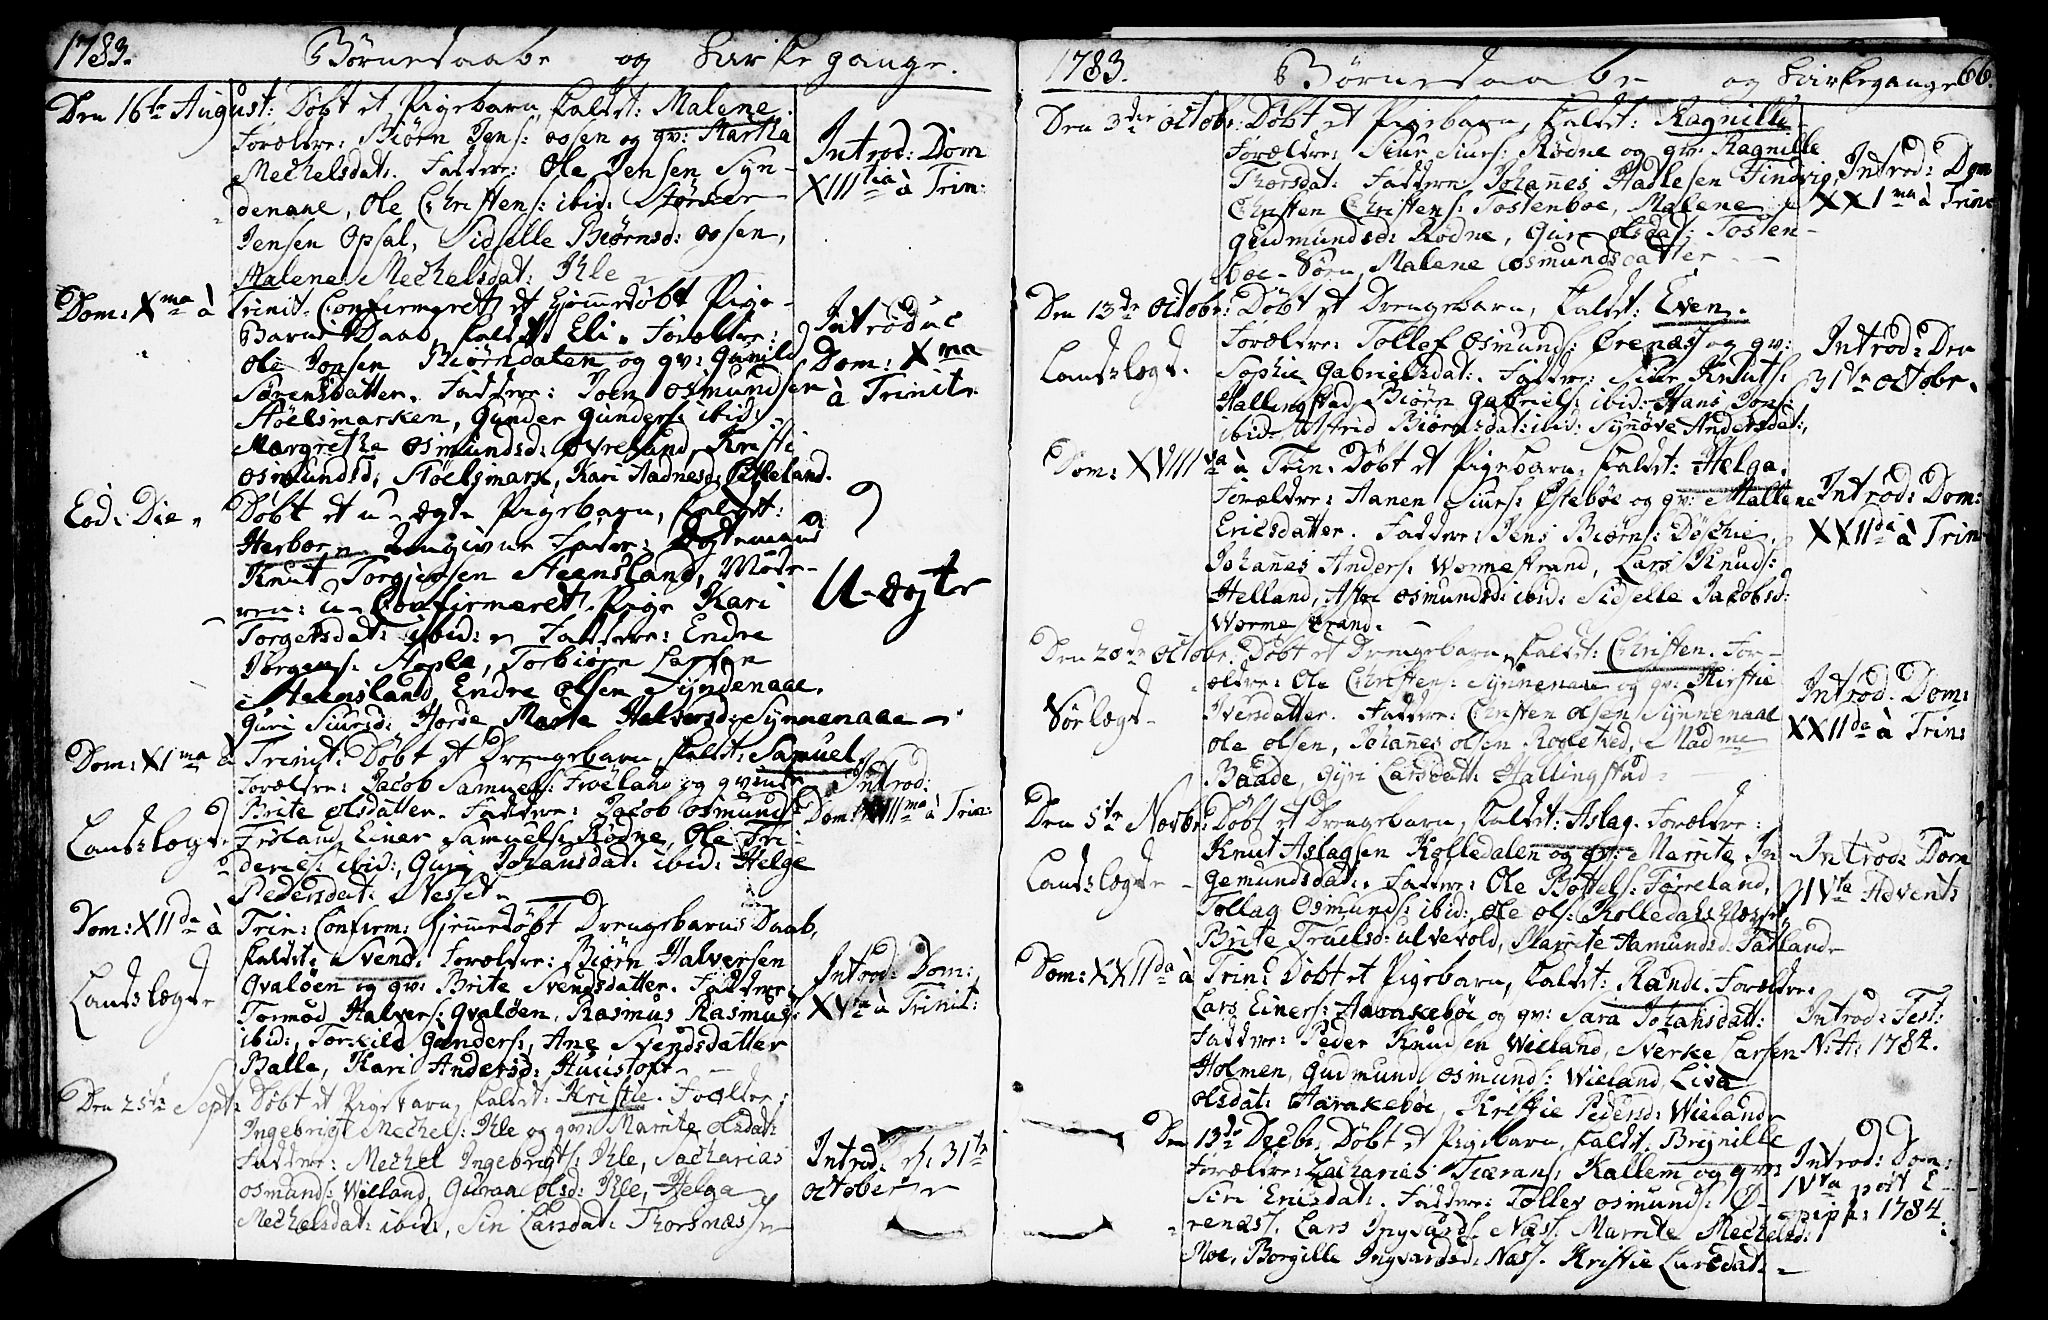 1783. Børnedaabe og Kirkegange.
Den 16te August: Døbt et Pigebarn, kaldet: Malene.
Forældre: Biørn Jens: osen og qv: Martha
Mechelsdat: Faddere: Ole Jensen Syn-
denaae, Ole Christens: ibid: Størker
Jensen Opsal, Sidselle Biørnsd: osen,
Malene Mechelsdat: Ihle
Introd: Dom
XIIItia à Trin:
Dom: Xma à Trinit. Confirmeret et hjemmedøbt Pige-
Barns Daab, kaldet Eli. Forældre:
Ole Jonsen Biørndalen og qv: Gunild
Sørensdatter. Faddere: Joen Osmundsen
Støelsmarken, Gunder Gunders: ibid:
Margrethe Osmundsd: Øvreland, Kristi
Osmundsd, Støelsmark, Kari Aadnesd:
Introduc
Dom: Xma
à Trinit:
Eod: Die Døbt et u-ægte Pigebarn, kaldet:
Herborn. Udgivne Fader: Ægtemand
Knut Torgiersen Steensland, Mode-
ren: u-Confirmeret Pige Kari
Torgersdat: ibid: Faddere: Endre
Jørgens: Stople, Torbiørn Larsen
Steensland, Endre Olsen Syndenaae.
Guri Siursd: Horde, Marta Halversd: Synnenaae
U-ægte
Dom: XIma à Trinit: Døbt et Drengebarn, kaldet: Samuel.
Forældre: Jacob Samuels: Frøland og qvinde
Brite Olsdatter. Faddere: Jacob Osmunds:
Frøland, Einer Samuels: Rødne, Ole Fri-
derics: ibid:, Guri Johansdat: ibid: Helge
Pedersdat: Nesset
Landslægd
Introd:
Dom: XVIIma à Trin:
Dom: XIIda à Trin: Confirm: hjemmedøbt Drengebarns Daab,
kaldet: Svend. Forældre: Biørn Halversen
Qvaløen og qv: Brite Svendsdatter. Faddere:
Tormod Halvers: Qvaløen, Rasmus Rasmus:
ibid:, Torkild Gunders:, Ane Svendsdatter
Balle, Kari Andersd: Huustoft
Landslægd
Introd: Dom:
XVta à Trinit:
Den 25te Sept: Døbt et Pigebarn, kaldet: Kristie. Forældre:
Ingebrigt Mechels: Ihle og qv: Marrite Olsdat:
Faddere: Mechel Ingebrigts: Ihle, Sacharias
Osmunds: Wieland, Guran Olsd: Ihle, Helga
Mechelsdat: ibid:, Siri Larsdat: Thorsnæs
Introd: d: 31te
October
1783. Børnedaabe og Kirkegange 66.
Den 3die Octobr: Døbt et Pigebarn, kaldet: Ragnille
Forældre: Siur Siurs: Rødne og qv: Ragnille
Thorsdat: Faddere: Johannes Hadlesen Findvig,
Christen Christens: Tostenboe, Malene
Gudmundsd: Rødne, Guri Olsdat: Tosten-
boe. Sørn, Malene Osmundsdatter
Introd: Dom
XXIma à Trin:
Den 13de Octobr: Døbt et Drengebarn, kaldet: Even.
Forældre: Tollef Osmunds: Ørenæs og qv:
Sophie Gabrielsdat: Faddere: Siur Knuts:
Hallingstad, Biørn Gabriels: ibid: Hans Jons:
ibid:, Astrid Biørnsdat: ibid: Synøve Andersdat:,
Landslægd.
Introd: Den
31te Octobr.
Dom: XVIIIva à Trin: Døbt et Pigebarn, kaldet: Helga.
Forældre: Aanen Siurs: Østebøe og qv: Mallene
Ericsdatter. Faddere: Jens Biørns: Døschie,
Johannes Anders: Wormestrand, Lars Knuds:
Helland, Osmundsd: ibid: Sidselle Jacobsd:
Wormestrand.
Introd: Dom:
XXIIda à Trin
Den 20de Octobr: Døbt et Drengebarn, kaldet: Christen. For-
ældre: Ole Christens: Synnenaae og qv: Kirstie
Iversdatter. Faddere: Christen Olsen Synnenaae
Ole Olsen, Johannes Olsen Mad me
Baade, Gyri Larsdat: Hallingstad
Sørlægd
Introd. Dom:
XXIIda à Trin:
Den 5te Novbr: Døbt et Drengebarn, kaldet: Aslag. Forældre:
Knut Aslagsen Kolledalen og qv: Marrite In-
gemundsdat: Faddere: Ole Bottels: Førreland,
Tollag Osmunds: ibid:, Ole Ols: Kolledals
Brite Truelsd: Ulvevold, Marrite Aamundsd: Fatland
Landslægd
Introd: Dom
IVta Advents
Dom: XXIIda à Trin: Døbt et Pigebarn, kaldet: Rande. Forældre:
Lars Einers: Aarakebøe og qv: Sara Johansdatt:
Faddere: Peder Knudsen Wieland, Sverke Larsen
Holmen, Gudmund Osmunds: Wieland, Liva
Olsdat: Aarakebøe, Kristie Pedersd: Wieland
Introd: Fest:
N: A: 1784.
Den 13de Decbr: Døbt et Pigebarn, kaldet: Brynille
Forældre: Zacharies Tiærans: Kallem og qv:
Siri Ericsdat: Faddere: Tollev Osmunds: Ø-
renæs, Lars Ingvards: Næs: Marrite Mechelsd:
Moe, Borgille Ingvardsd: Næs: Kristie Larsdat:
Introd: Dom:
IVta post E-
piph: 1784